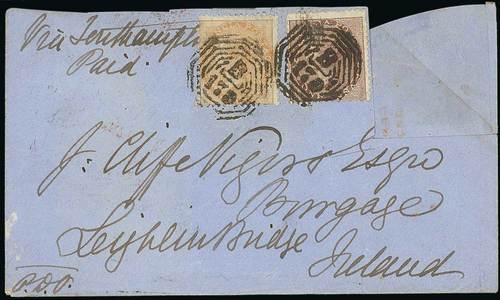 Via Southampton
Paid
B
172
B
172
J. Cliffe Vigors Esqre
Burgage
Leighlin Bridge
Ireland